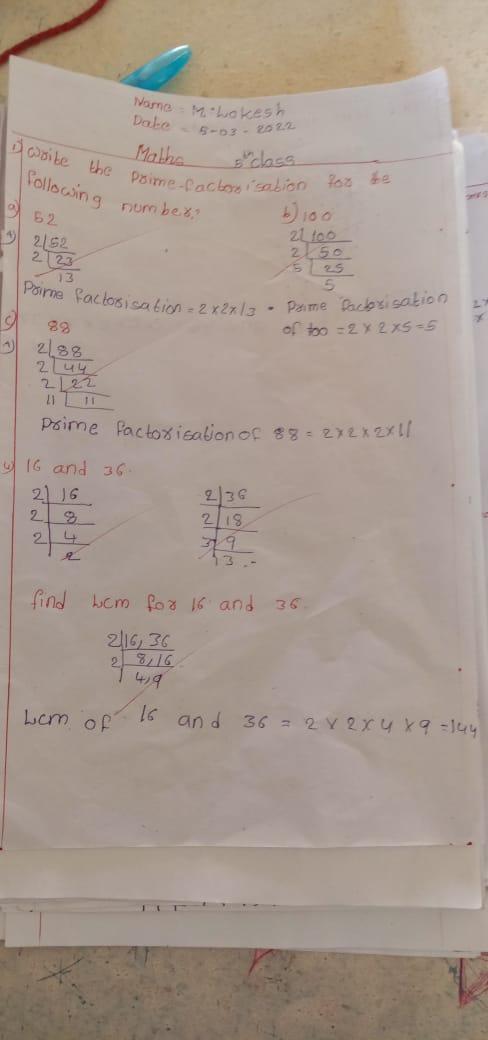 Name = M. Lokesh
Date = 5-03-2022
Maths 5th class
1) Write the Prime-factorisation for the
following number?
a) 52 b) 100
A) 2|52 2|100
2|23 2|50
13 5|25
5
Prime factorisation = 2x2x13 • Prime factorisation
of 100 = 2x2x5=5
c) 88
A) 2|88
2|44
2|22
11|11
Prime factorisation of 88 = 2x2x2x11
4) 16 and 36.
2|16 2|36
2|8 2|18
2|4 3|9
2 3.-
find Lcm for 16 and 36.
2|16, 36
2|8,16
4,9
Lcm of 16 and 36 = 2x2x4x9=144